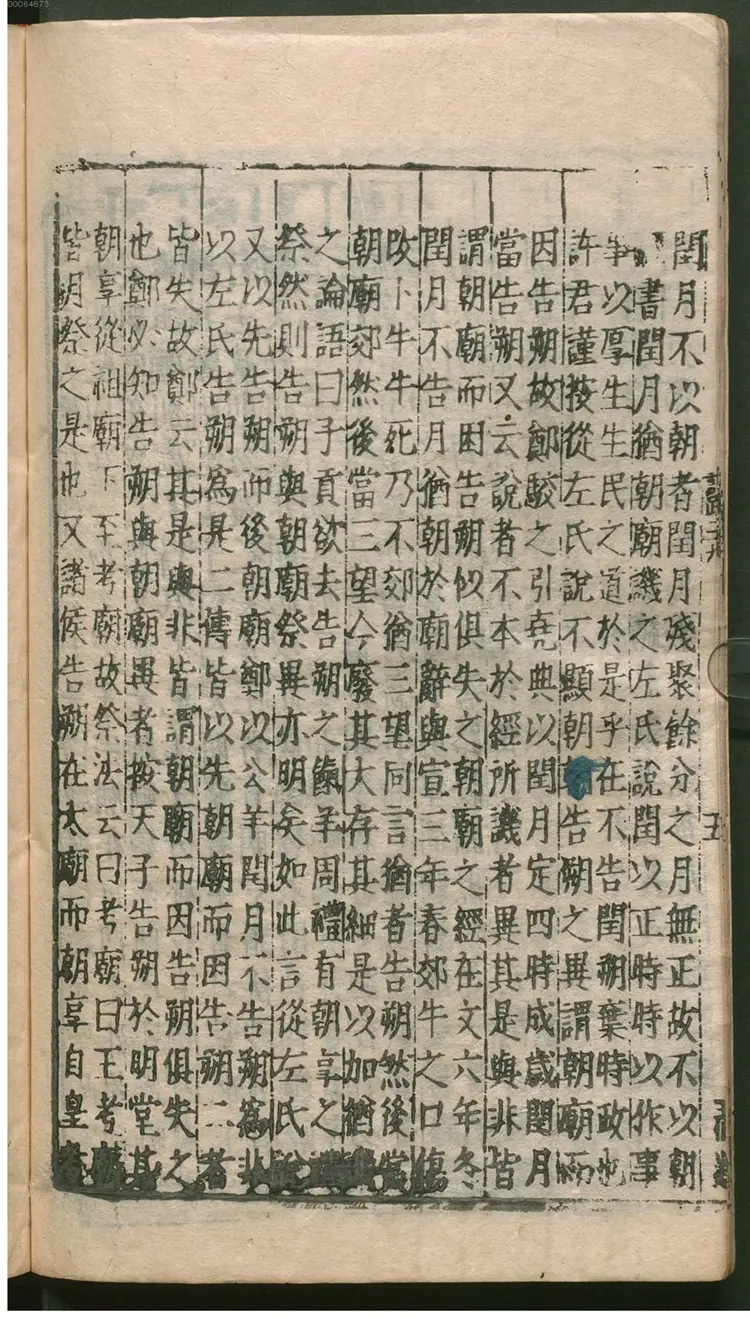 閏月不以朝者閏月殘聚餘分之月無正故不以朝
書閏月猶朝廟譏之左氏說閏以正時時以作事
事以厚生生民之道於是乎在不告閏朔棄時政也
許君謹按從左氏說不顯朝告朔之異謂朝廟而
因告朔故鄭駮之引堯典以閏月定四時成歲閏月
當告朔又云說者不本於經所譏者異其是與非皆
謂朝廟而因告朔似俱失之朝廟之經在文六年冬
閏月不告月猶朝於廟辭與宣三年春郊牛之口傷
改卜牛牛死乃不郊猶三望同言猶者告朔然後當
朝廟郊然後當三望今廢其大存其細是以加猶
之論語曰子貢欲去告朔之餼羊周禮有朝享之
祭然則告朔與朝廟祭異亦明矣如此言從左氏說
又以先告朔而後朝廟鄭以公羊閏月不告朔為非
以左氏告朔為是二傳皆以先朝廟而因告朔二者
皆失故鄭云其是與非皆謂朝廟而因告朔俱失之
也鄭必知告朔與朝廟異者按天子告朔於明堂其
朝享從祖廟下至考廟故祭法云曰考廟曰王考廟
皆月祭之是也又諸侯告朔在太廟而朝享自皇考
五
00064873